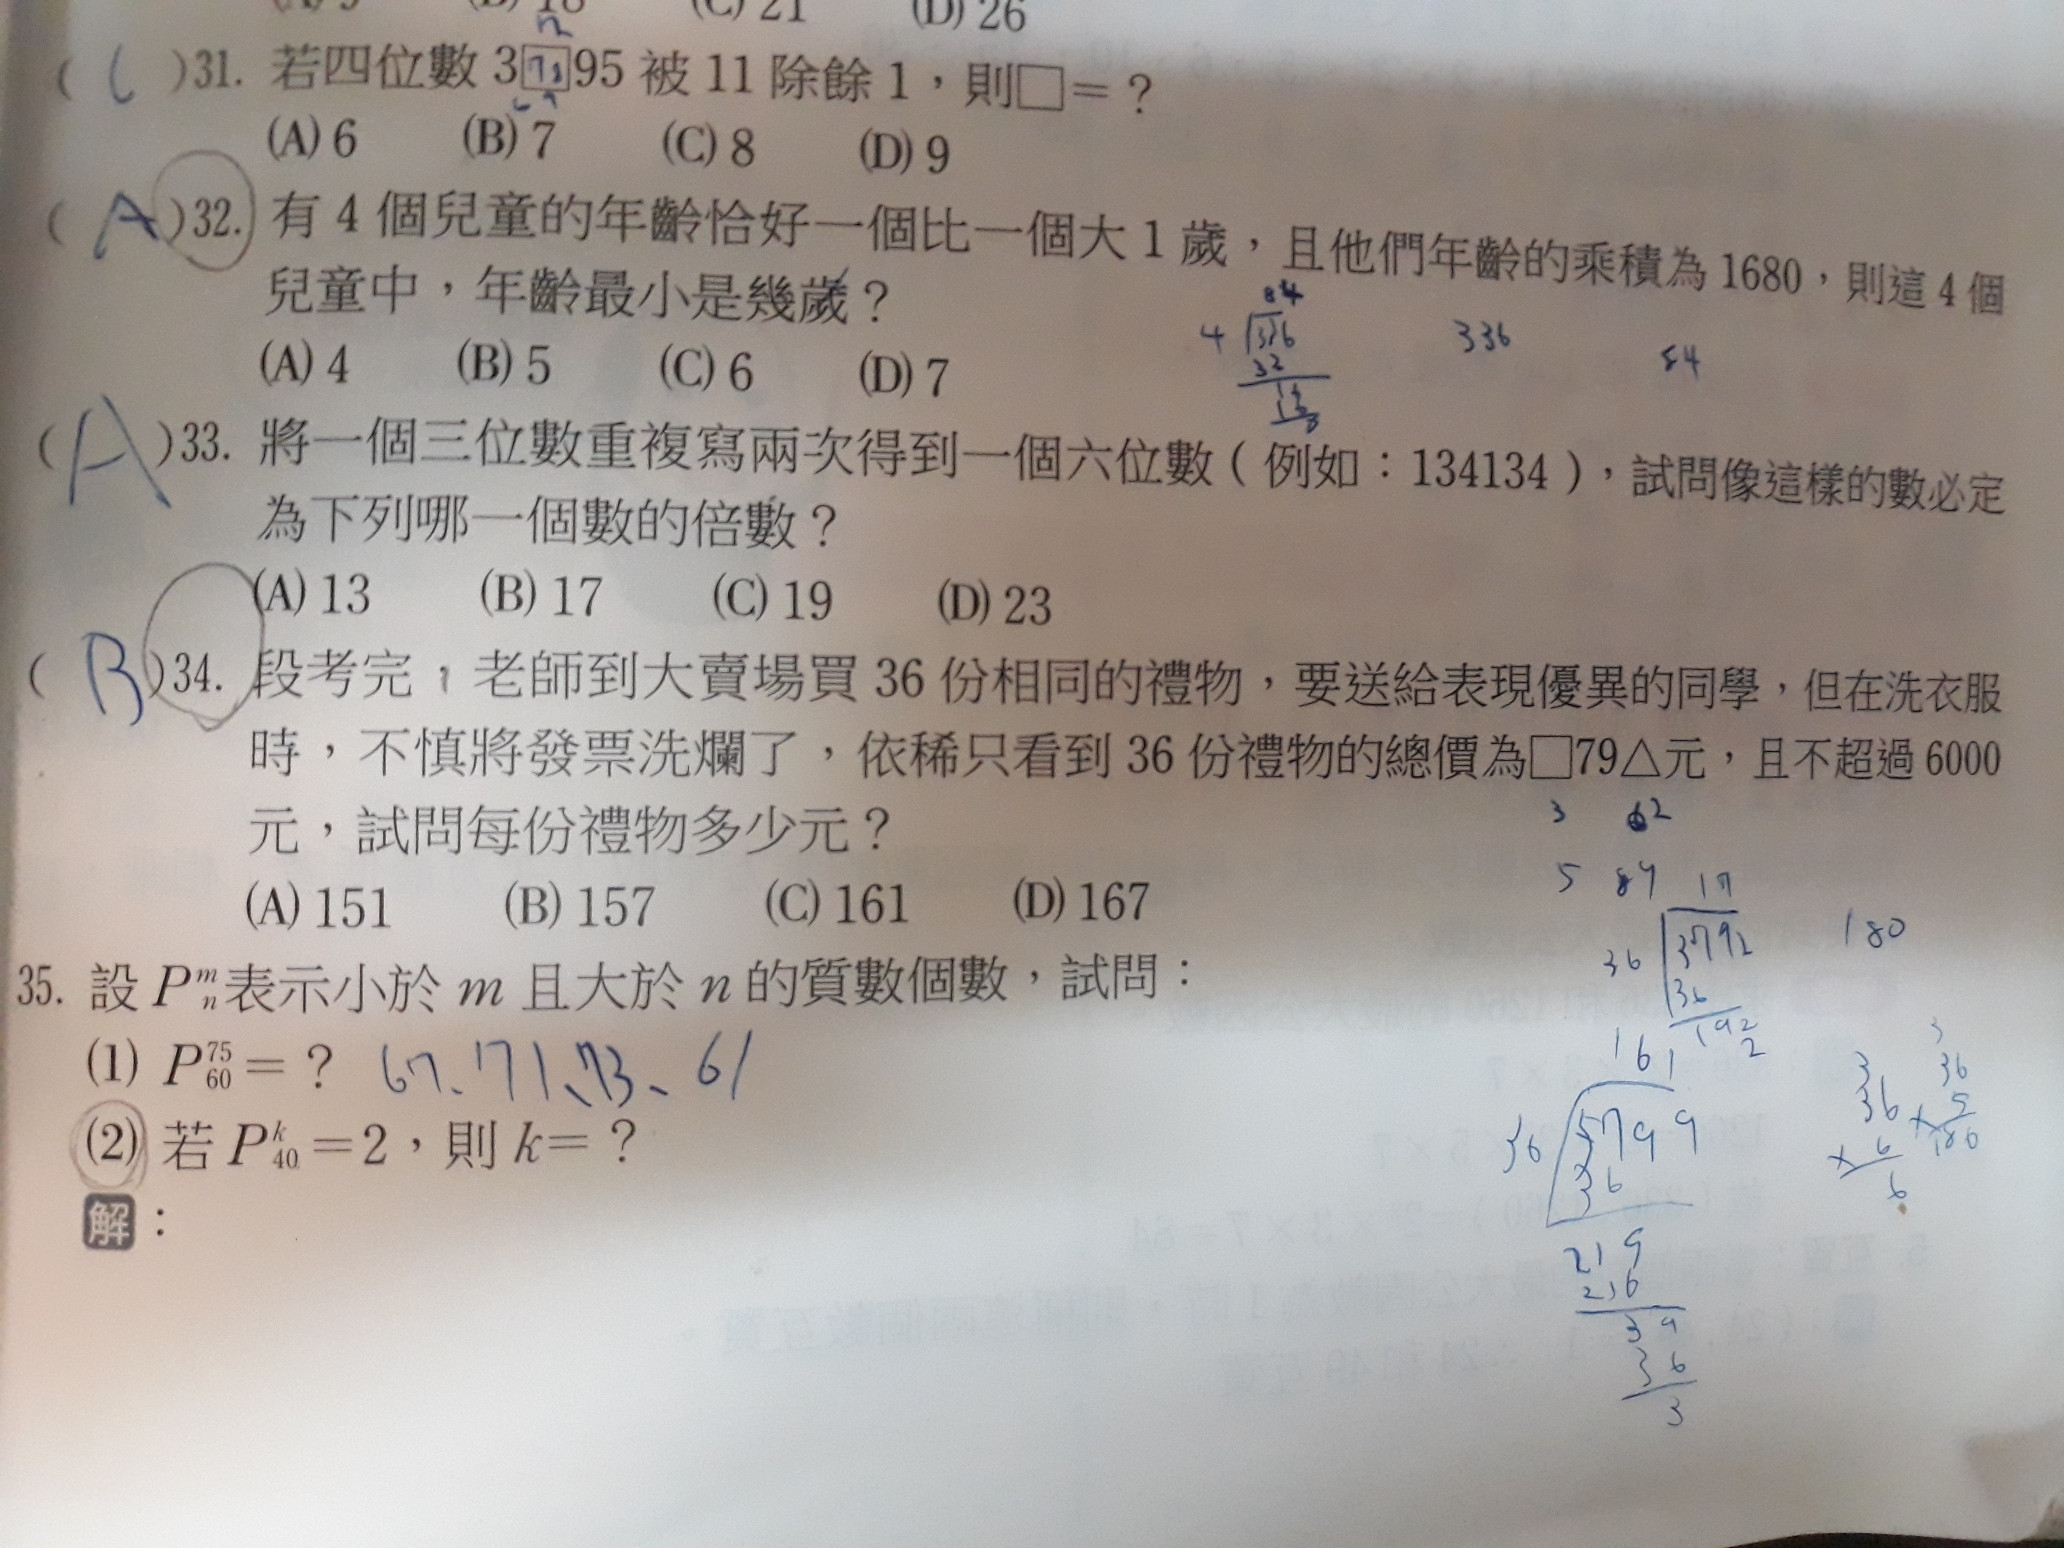 (A) 9 (B) 18 (C) 21 (D) 26
( C )31. 若四位數 3□95 被 11 除餘 1，則□＝？
(A) 6 (B) 7 (C) 8 (D) 9
( A )32. 有 4 個兒童的年齡恰好一個比一個大 1 歲，且他們年齡的乘積為 1680，則這 4 個
兒童中，年齡最小是幾歲？
84
4 336 336 84
32
16
(A) 4 (B) 5 (C) 6 (D) 7
( A )33. 將一個三位數重複寫兩次得到一個六位數（例如：134134），試問像這樣的數必定
為下列哪一個數的倍數？
(A) 13 (B) 17 (C) 19 (D) 23
( B )34. 段考完，老師到大賣場買 36 份相同的禮物，要送給表現優異的同學，但在洗衣服
時，不慎將發票洗爛了，依稀只看到 36 份禮物的總價為□79△元，且不超過 6000
元，試問每份禮物多少元？
3 62
5 17
(A) 151 (B) 157 (C) 161 (D) 167
36 3792 180
36
192
2
35. 設 Pᵐₙ表示小於 m 且大於 n 的質數個數，試問：
(1) P⁷⁵₆₀＝？ 67、71、73、61
(2) 若 Pᵏ₄₀＝2，則 k＝？
解：
161
36 5799
36
219
216
39
36
3
3
36
× 6
6
3
36
× 5
180